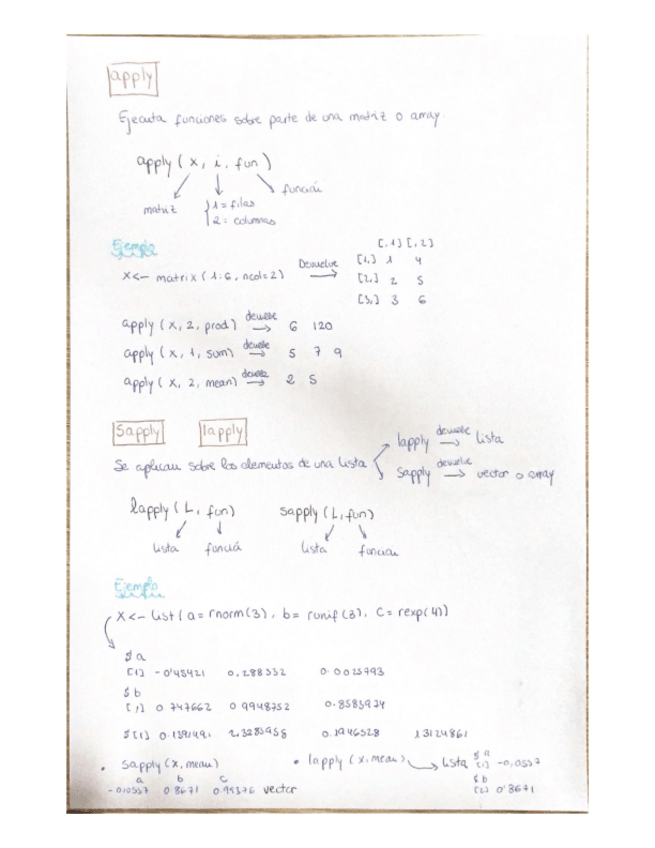 apply
Ejecuta funciones sobre parte de una matriz o array.
apply ( x, i, fun )
matriz
1 = filas
2 = columnas
función
Ejemplo
x <- matrix ( 1:6, ncol=2 )
Devuelve
[,1] [,2]
[1,] 1 4
[2,] 2 5
[3,] 3 6
apply ( x, 2, prod ) devuelve → 6 120
apply ( x, 1, sum ) devuelve → 5 7 9
apply ( x, 2, mean ) devuelve → 2 5
sapply lapply
Se aplican sobre los elementos de una lista
lapply devuelve → lista
sapply devuelve → vector o array
lapply ( L, fun )
lista función
sapply ( L, fun )
lista función
Ejemplo
X <- list ( a = rnorm(3), b = runif (3), c = rexp(4))
$a
[1] -0'45421 0.288332
$b
[1] 0.747662 0.9948752 0.8583924
$[1]
• sapply (x, mean)
a b c
0'8671 vector
• lapply (x, mean) → lista
$a
[1] -0,0557
$b
[1] 0'8671